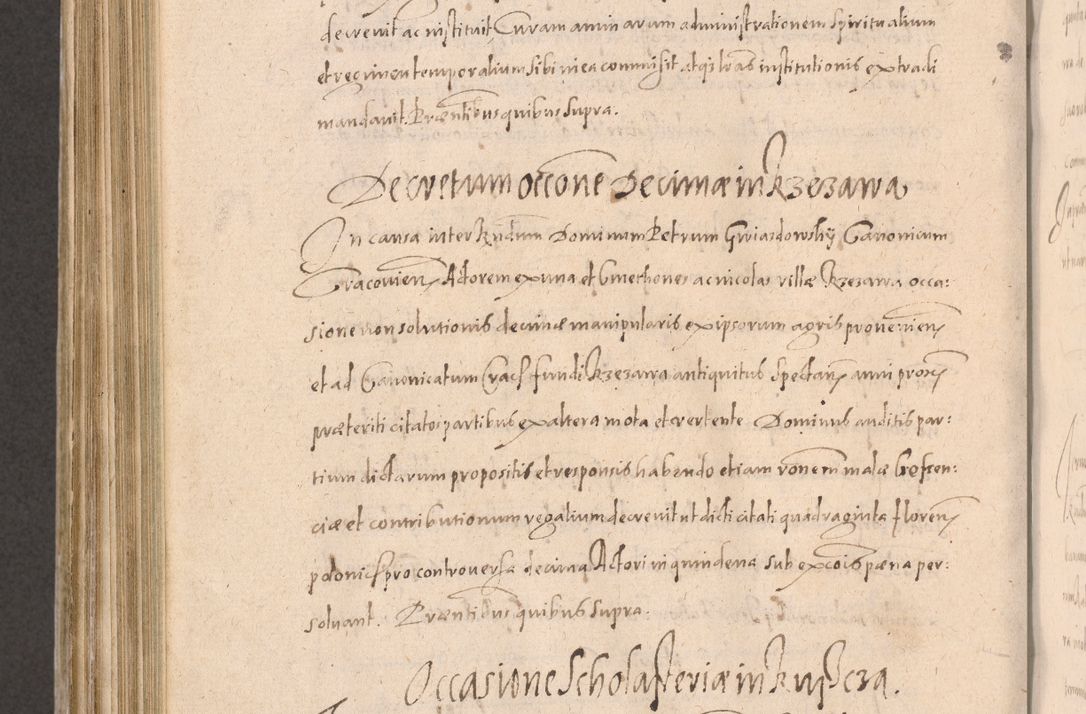 decrevit ac instituit Curam animarum administrationem spiritualium
et regimen temporalium sibi in ea commisit atq; lras institutionis extradi
mandavit. Præntibus quibus supra.
Decretum occone Decimæ in Krzezawa
In causa inter Rndum Dominum Petrum Gwiazdowsky Canonicum
Cracovien Actorem ex una et Cmethones ac incolas villæ Krzezawa occa:
sione non solutionis decimæ manipularis ex ipsorum agris provenien
et ad Canonicatum Crac fundi Krzezawa antiquitus spectan anni prox
præteriti citatos partibus ex altera mota et vertente Dominus auditis par:
tium dictarum propositis et responsis habendo etiam ronem malæ Crescen:
ciæ et contributionum regalium decrevit ut dicti citati quadraginta floren
polonic pro controversa decima Actori in quindena sub excois pæna per:
solvant. Præntibus quibus supra.
Occasione Scholasteriæ in Kurzelow